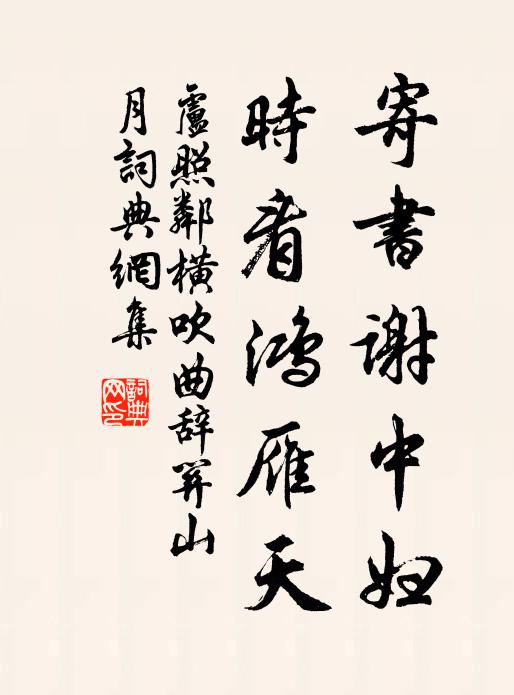 寄書謝中婦
時看鴻雁天
盧照鄰橫吹曲辭關山
月詞典網集
詞典網印